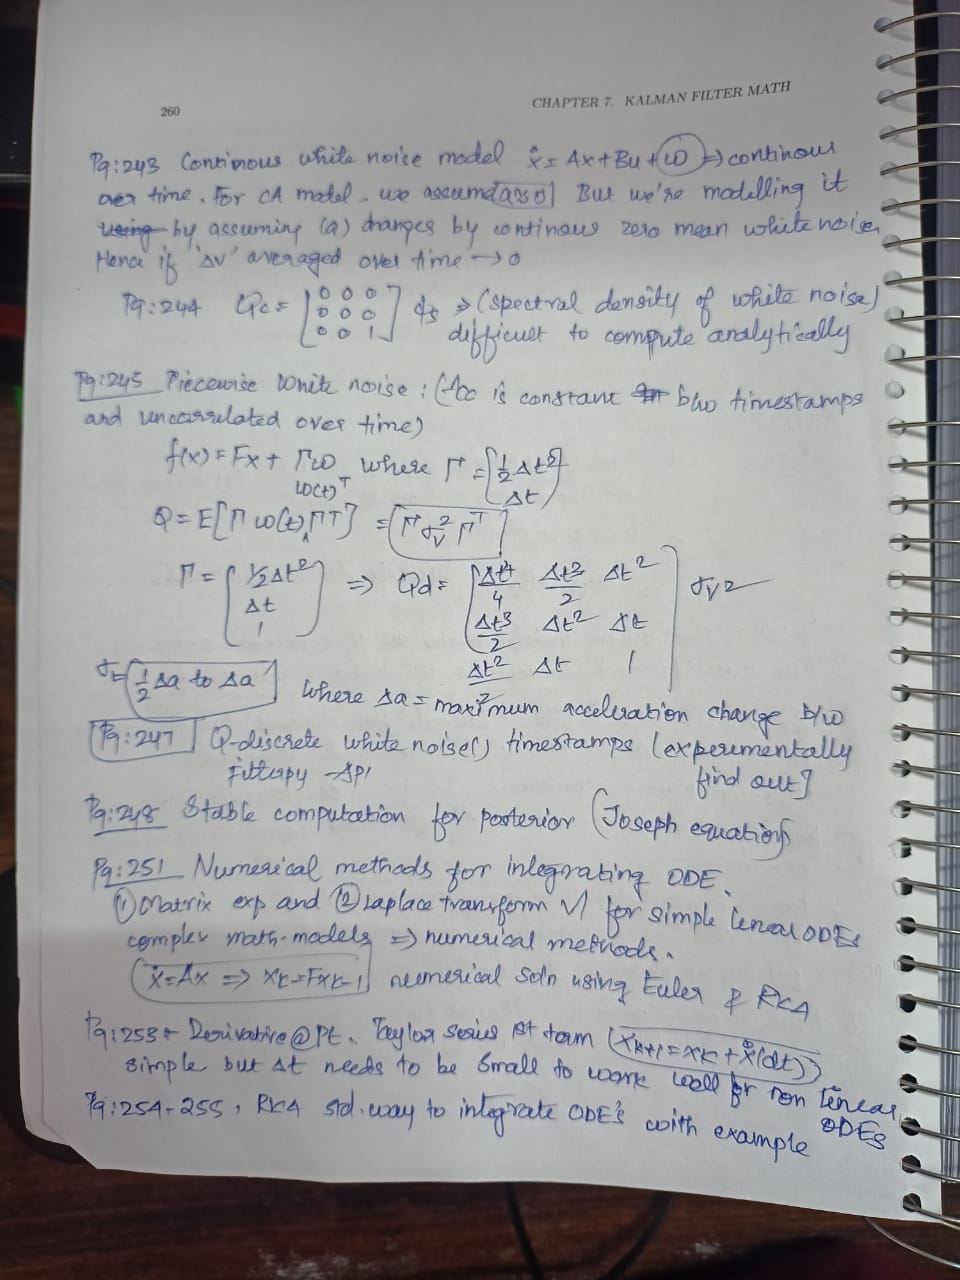 260
CHAPTER 7. KALMAN FILTER MATH
Pg:243 Continous white noise model ẋ = Ax+Bu+(ω) ⇒ continous
over time. For CA model, we assumed (a≈0) But we're modelling it
using by assuming (a) changes by continous zero mean white noise,
Hence if 'Δv' averaged over time → 0
Pg:244 Qc = [0 0 0; 0 0 0; 0 0 1] ϕs ⇒ (spectral density of white noise)
difficult to compute analytically
Pg:245 Piecewise white noise: (Acc is constant b/w timestamps
and uncorrelated over time)
f(x) = Fx + Γω where Γ = [½Δt² Δt]
ω(t)ᵀ
Q = E[Γ ω(t) Γᵀ] = [Γ σv² Γᵀ]
Γ = [½Δt²; Δt; 1] ⇒ Qd = [Δt⁴/4 Δt³/2 Δt²/2; Δt³/2 Δt² Δt; Δt²/2 Δt 1] σv²
σ = [½ Δa to Δa] where Δa = maximum acceleration change b/w
Pg:247 Q-discrete white noise() timestamps (experimentally
Filterpy API find out]
Pg:248 Stable computation for posterior (Joseph equations)
Pg:251 Numerical methods for integrating ODE.
① Matrix exp and ② Laplace transform √ for simple linear ODEs
complex math-models ⇒ numerical methods.
(ẋ=Ax ⇒ xk=Fxk-1) numerical soln using Euler & RK4
Pg:253 Derivative @ Pt. Taylor series 1st term (xk+1 = xk + ẋ(dt))
simple but Δt needs to be small to work well for non linear
ODEs
Pg:254-255, RK4 std. way to integrate ODE's with example